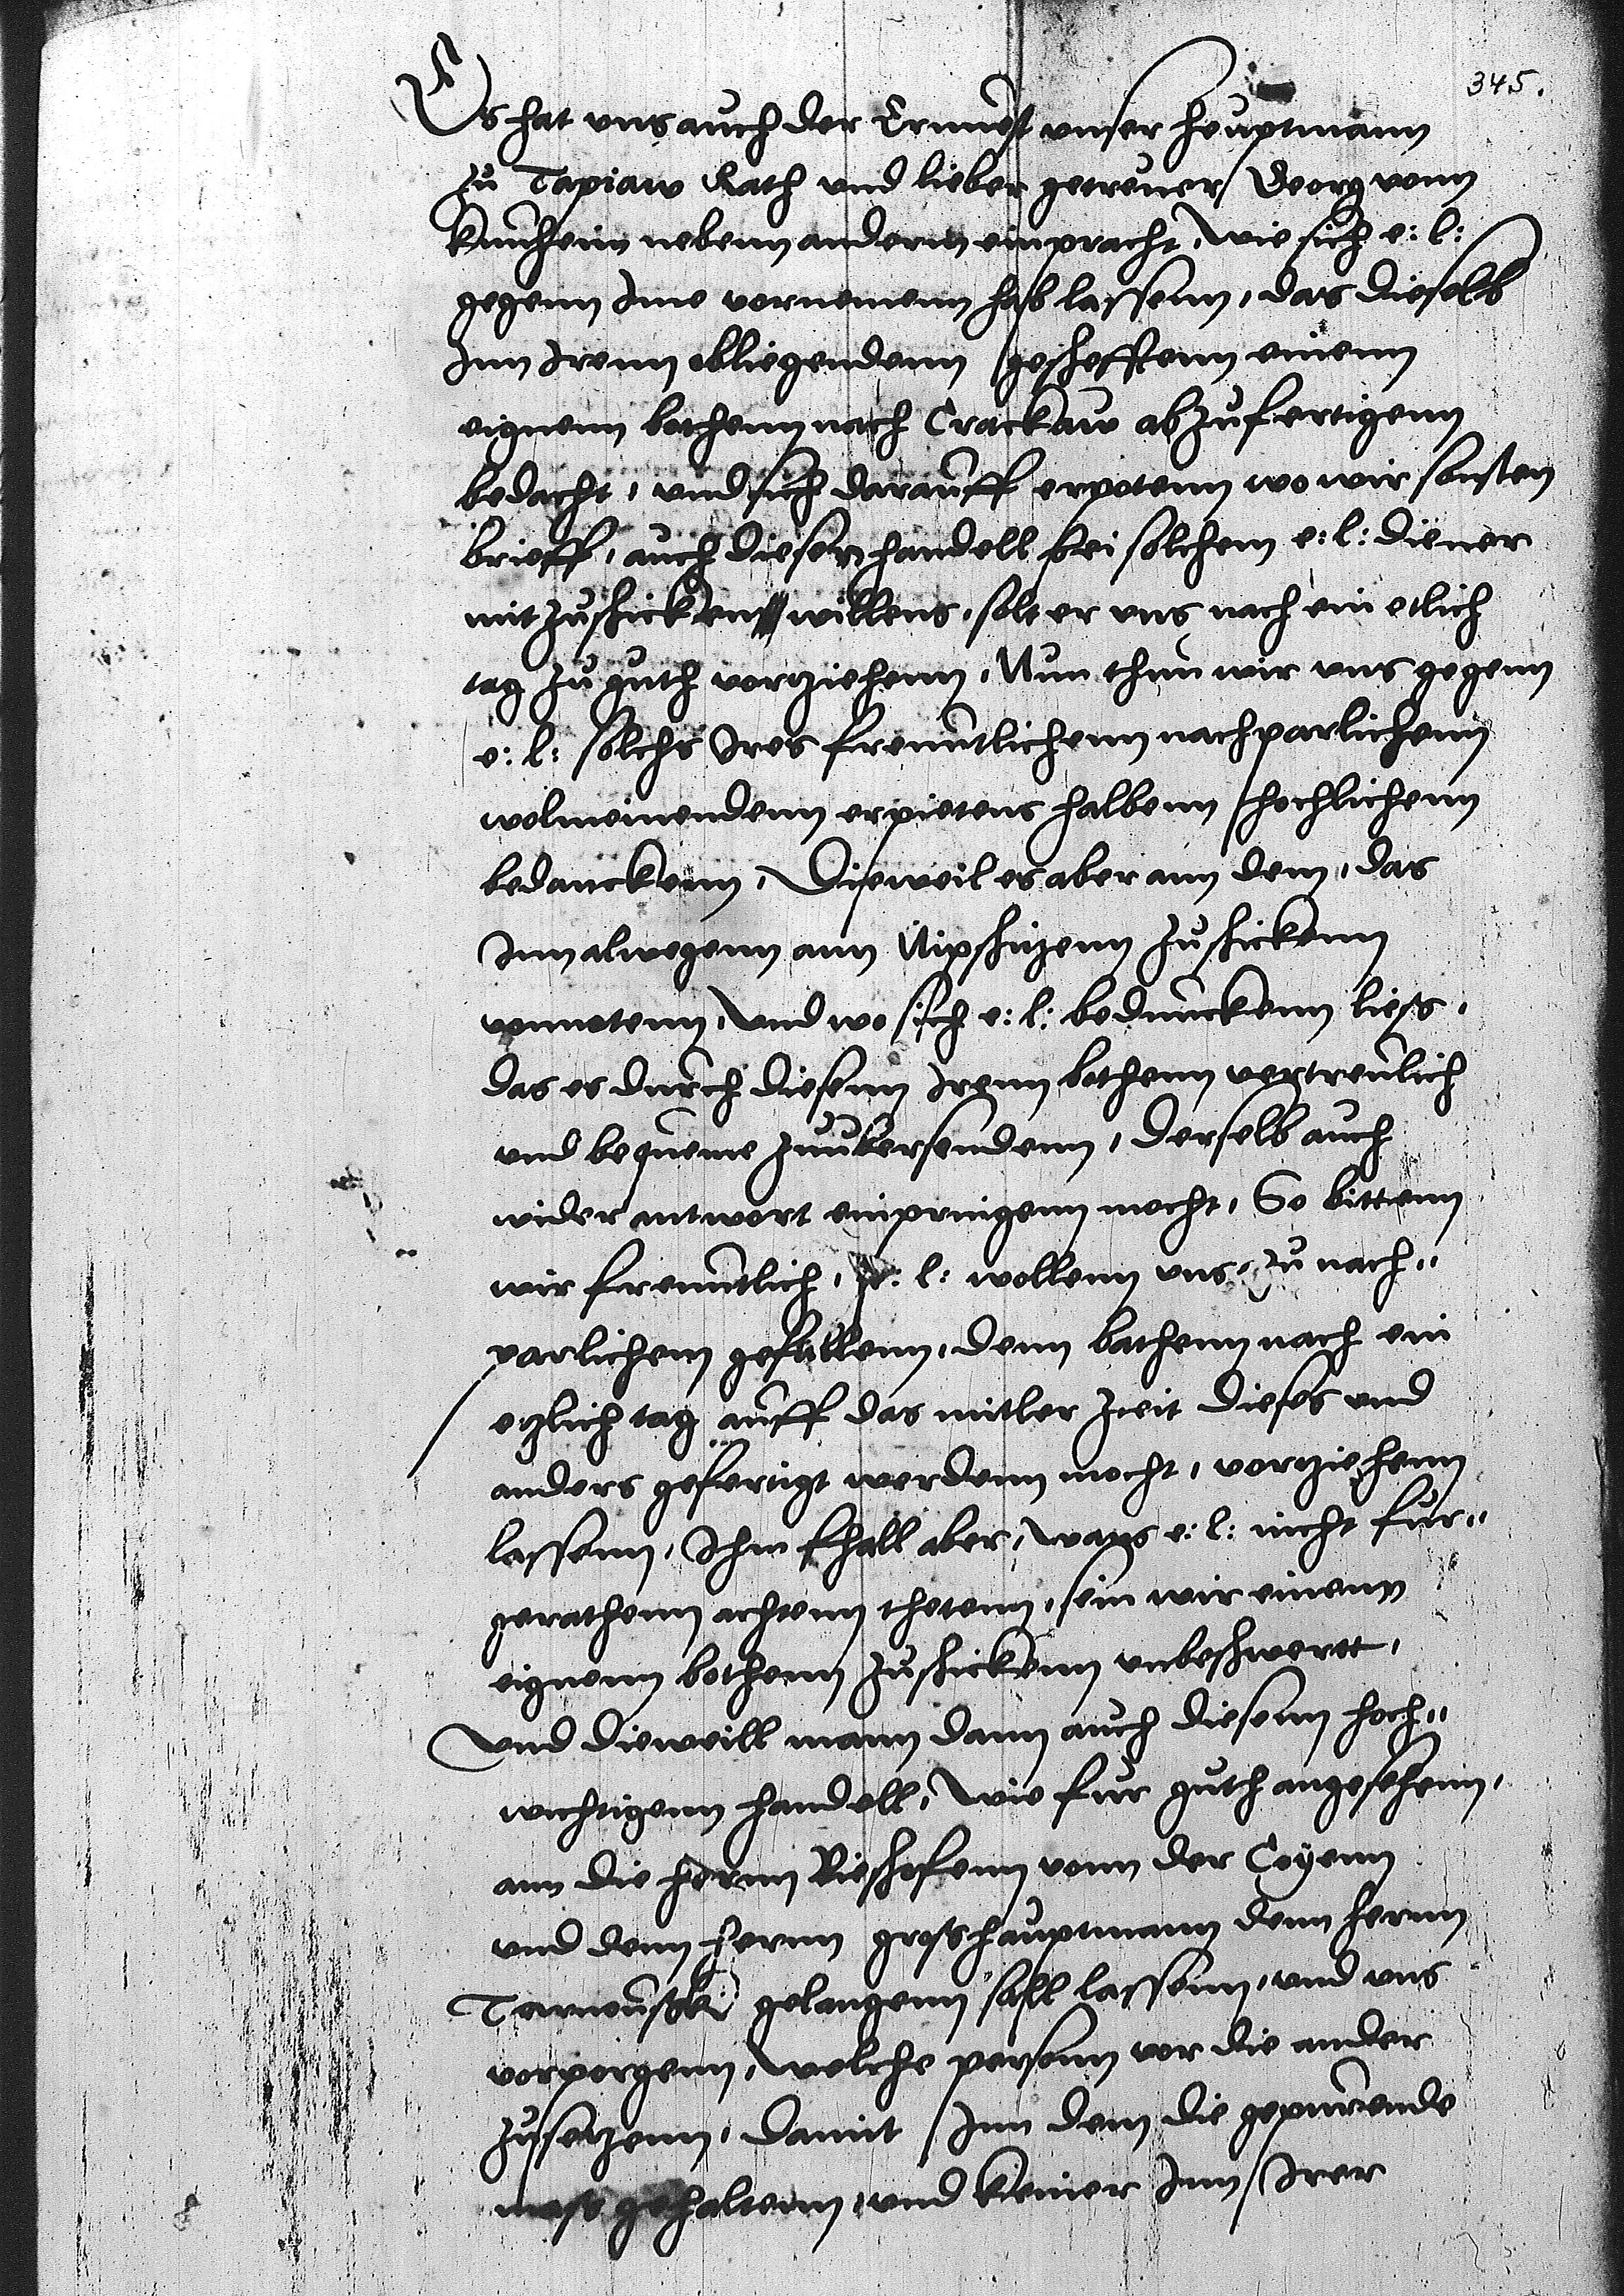 345.
Es hat vns auch der Ernuest vnser heuptmann
zu Tapiaw Rath vnd lieber getreuer Georg vonn
kunheim nebenn anderm einpracht, wie sich e: l:
gegenn Ime vornemenn hab lassenn, das dieselb
Inn Irenn obliegendenn gescheftenn einenn
eignenn bothenn nach Crackaw abzufertigenn
bedacht, vnd sich darauff erpotenn wo wir sonsten
brieff, auch diesen handell bei solchem e: l: diener
mitzuschicken willens, solt er vns nach ein etlich
tag zu guth vorziehenn, Nun thun wir vns gegenn
e: l: solchs Ires freuntlichenn nachparlichenn
wolmeinendenn erpietens halbenn hochlichenn
bedanckenn, Dieweil es aber ann dem, das
Inn alwegenn ann Nipschizenn zuschickenn
vonnotenn, vnd wo sich e: l: bedunckenn liess,
das es durch diesenn Irenn bothenn vertreulich
vnd bequeme zuubersendenn, derselb auch
wider antwort einpringenn mocht, So bittenn
wir freuntlich, e: l: wollenn vns zu nach=
parlichem gefallenn, denn bothenn nach ein
etzlich tag auff das mitler zeit dieses vnd
anders gefertigt werdenn mocht, vorziehenn
lassenn, Ihm fhall aber, wans e: l: nicht fur=
gerathenn achtenn thetenn, sein wir einenn
eignenn bothenn zuschickenn vnbeschwertt,
Vnd dieweill mann dann auch diesenn hoch=
wichtigenn handell, wie fur guth angesehenn,
ann die hernn Bischofenn vonn der Coyenn
vnd denn hernn grosshauptmann denn hernn
Tarnouski gelangenn soll lassenn, vnd vns
vorporgenn, welche personn vor die ander
zusetzenn, damit Inn dem die gepurende
mass gehaltenn, vnd keiner Inn Irer